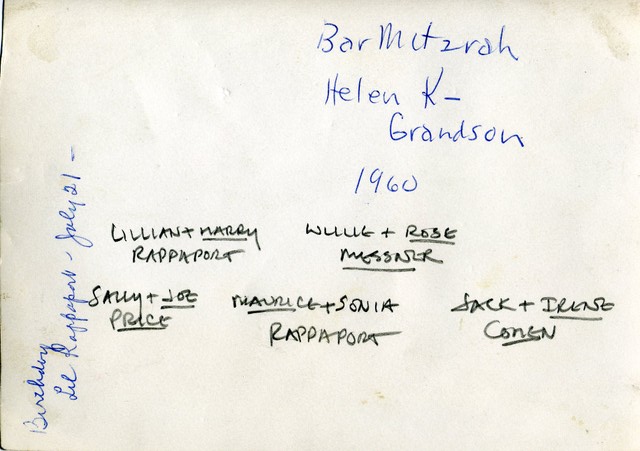 Bar Mitzvah
Helen K-
Grandson
1960
LILLIAN + HARRY
RAPPAPORT
WILLIE + ROSE
MESSNER
SALLY + JOE
PRICE
MAURICE + SONIA
RAPPAPORT
JACK + IRENE
COHEN
Birthday
Lil Rappaport - July 21 -